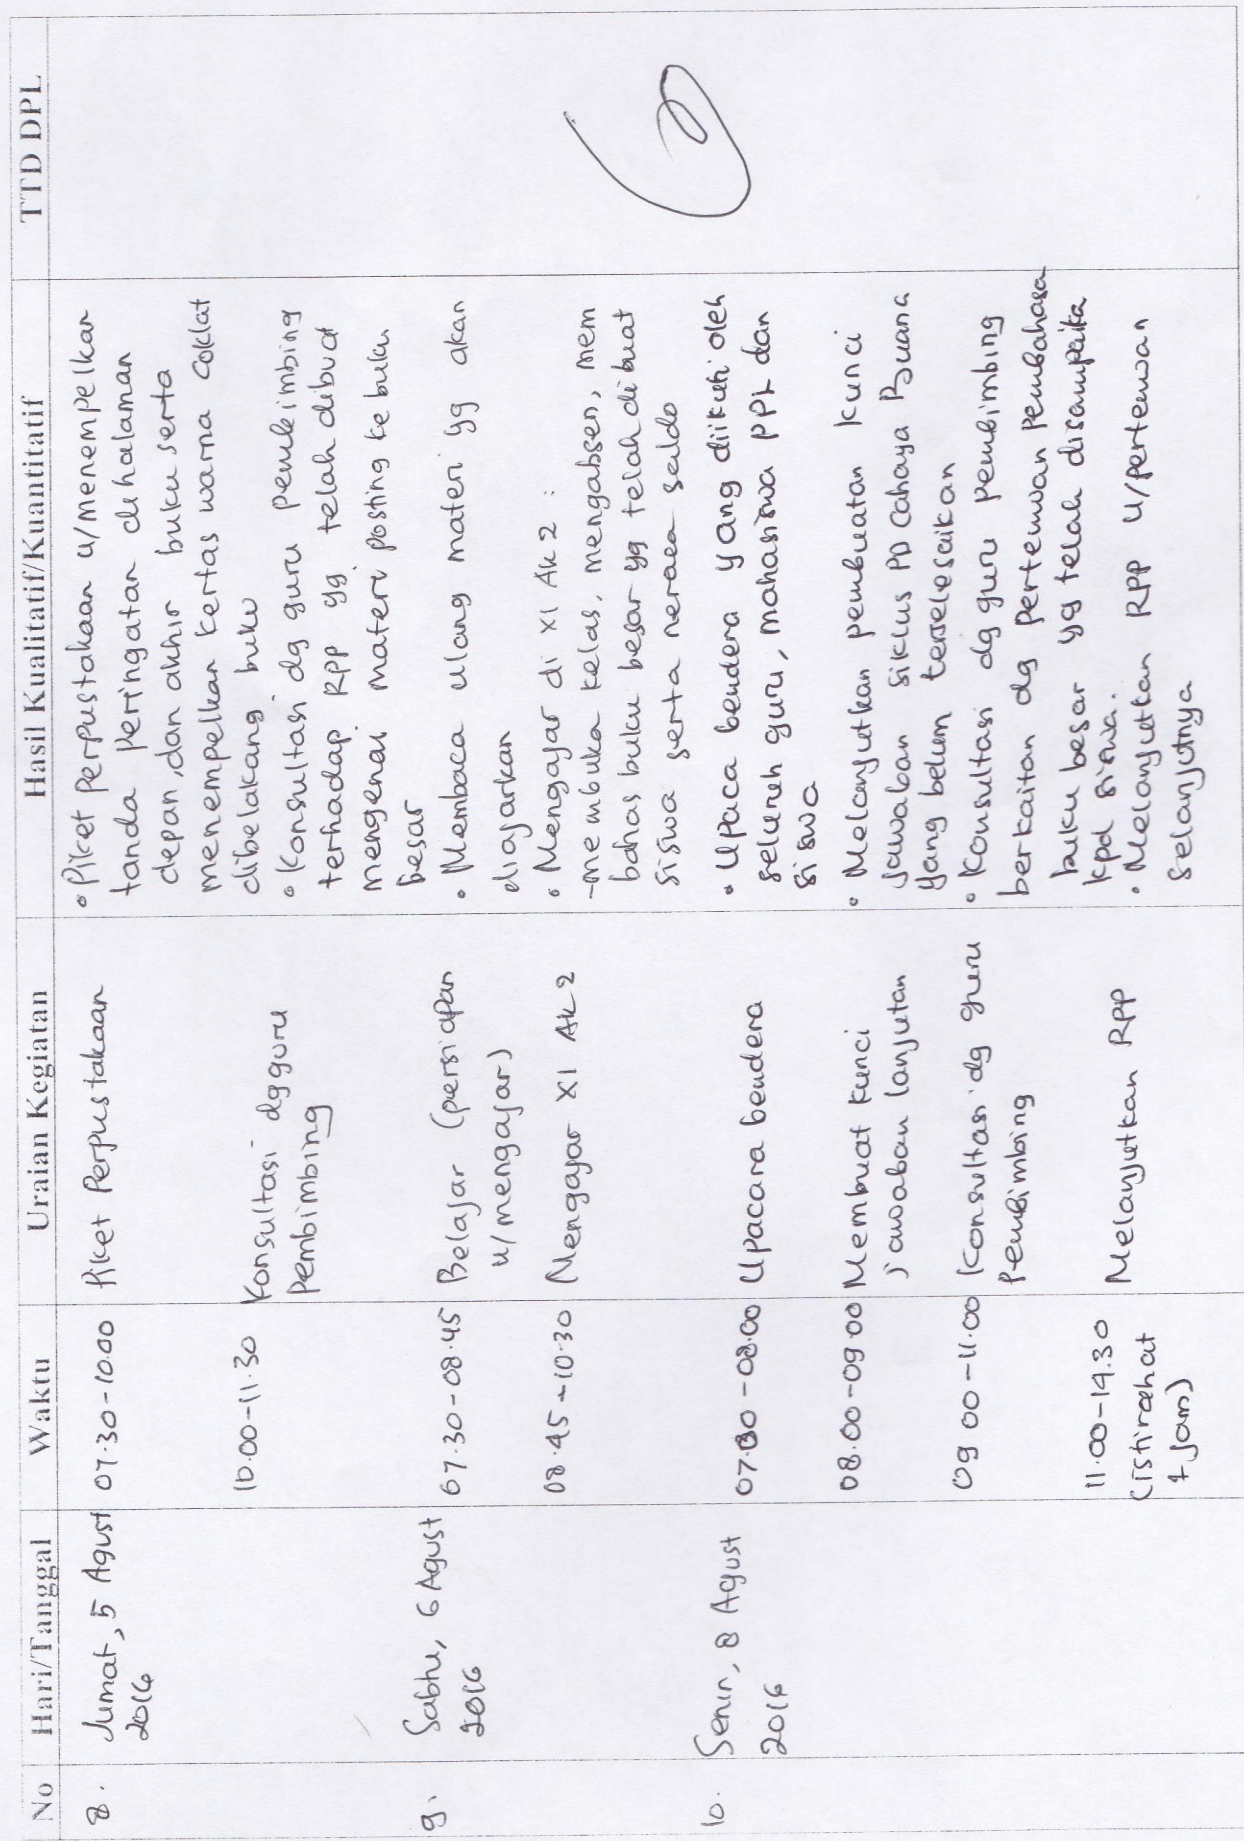 No Hari/Tanggal Waktu Uraian Kegiatan Hasil Kualitatif/Kuantitatif TTD DPL
8. Jumat, 5 Agust
2016
07.30-10.00
Piket Perpustakaan
• Piket Perpustakaan u/menempelkan
tanda peringatan dihalaman
depan, dan akhir buku serta
menempelkan kertas warna coklat
dibelakang buku
10.00-11.30
Konsultasi dg guru
Pembimbing
• Konsultasi dg guru pembimbing
terhadap RPP yg telah dibuat
mengenai materi posting ke buku
besar
9. Sabtu, 6 Agust
2016
07.30-08.45
Belajar (persiapan
u/mengajar)
• Membaca ulang materi yg akan
diajarkan
08.45-10.30
Mengajar XI AK 2
• Mengajar di XI AK 2 :
-membuka kelas, mengabsen, mem
bahas buku besar yg telah dibuat
siswa serta neraca saldo
10. Senin, 8 Agust
2016
07.00-08.00
Upacara bendera
• Upaca bendera yang diikuti oleh
seluruh guru, mahasiswa PPL dan
siswa
08.00-09.00
Membuat kunci
jawaban lanjutan
• Melanjutkan pembuatan kunci
jawaban siklus PD Cahaya Buana
yang belum terselesaikan
09.00-11.00
Konsultasi dg guru
Pembimbing
• Konsultasi dg guru pembimbing
berkaitan dg pertemuan pembahasa
buku besar yg telah disampaika
kpd siswa.
11.00-14.30
(istirahat
1 jam)
Melanjutkan RPP
• Melanjutkan RPP u/pertemuan
selanjutnya